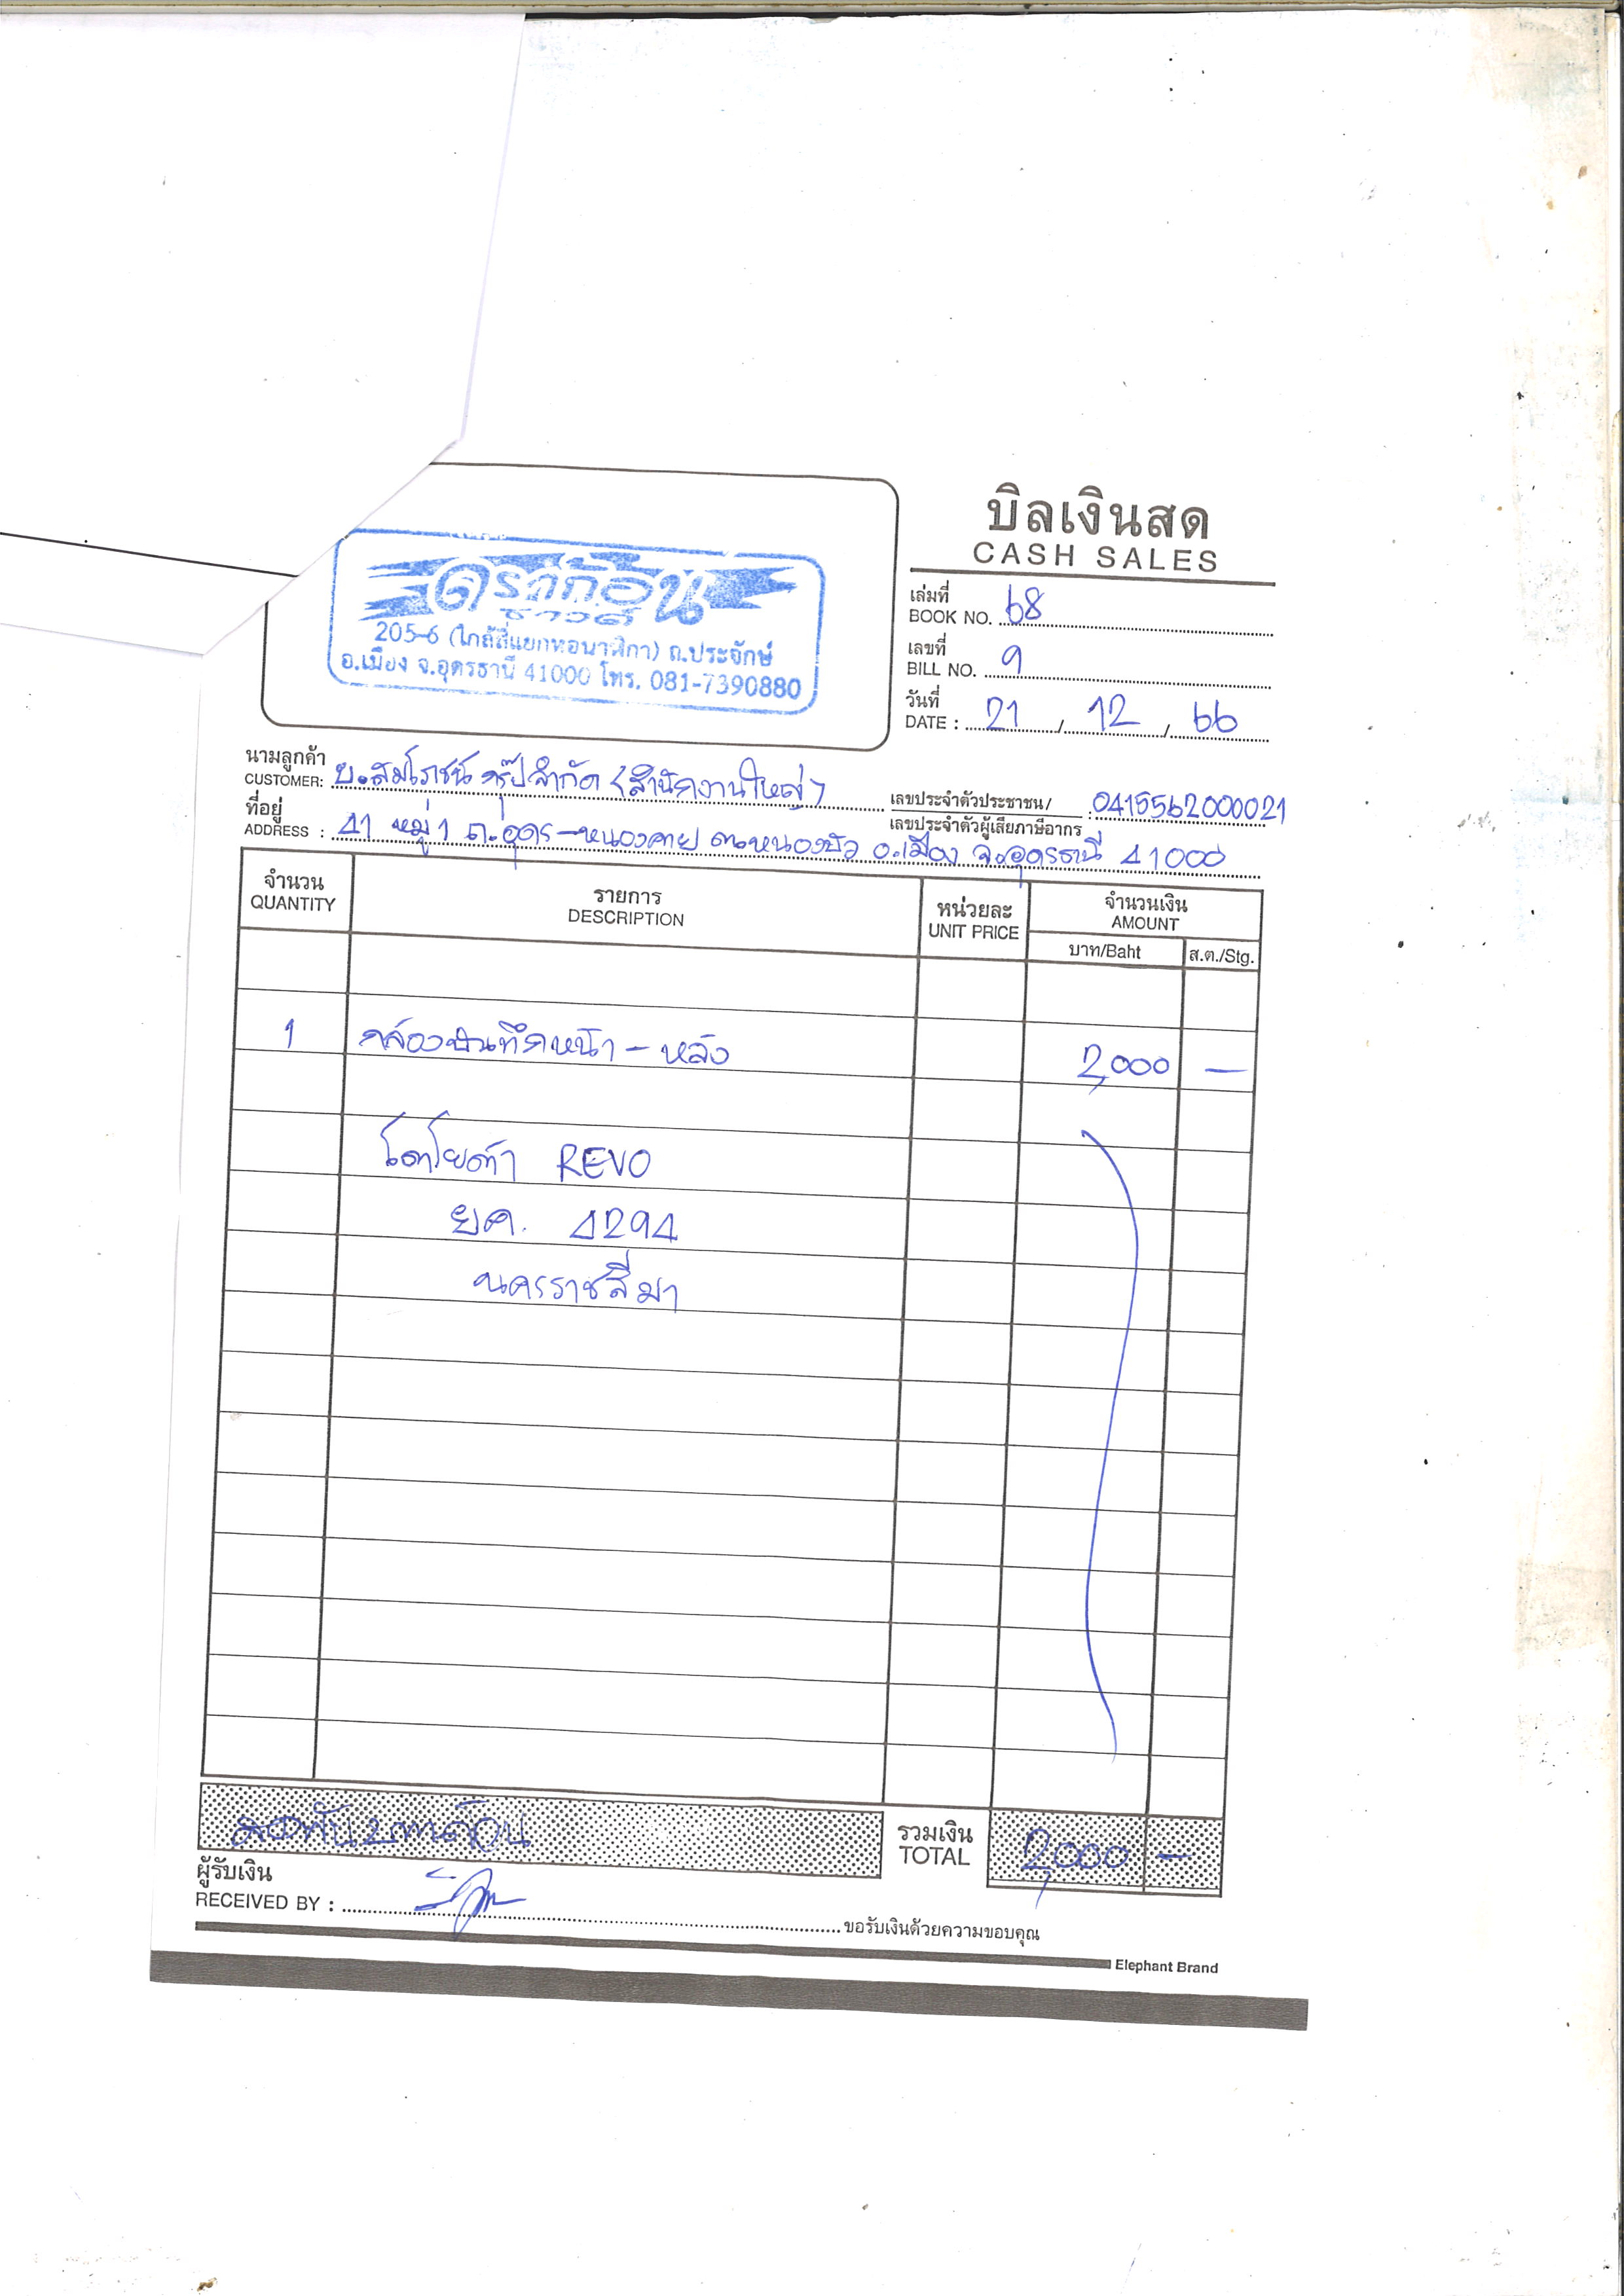 ดราก้อน
205-6 (ใกล้สี่แยกหอนาฬิกา) ถ.ประจักษ์
อ.เมือง จ.อุดรธานี 41000 โทร. 081-7390880
บิลเงินสด
CASH SALES
เล่มที่
BOOK NO. 68
เลขที่
BILL NO. 9
วันที่
DATE : 21 / 12 / 66
นามลูกค้า
CUSTOMER: บ.สมโภชน์ กรุ๊ป จำกัด (สำนักงานใหญ่)
เลขประจำตัวประชาชน/
เลขประจำตัวผู้เสียภาษีอากร : 0415562000021
ที่อยู่
ADDRESS : 41 หมู่ 1 ถ.อุดร-หนองคาย ต.หนองบัว อ.เมือง จ.อุดรธานี 41000
จำนวน รายการ หน่วยละ จำนวนเงิน
QUANTITY DESCRIPTION UNIT PRICE AMOUNT
บาท/Baht ส.ต./Stg.
1 กล้องบันทึกหน้า - หลัง 2,000 -
โตโยต้า REVO
ยค. 4294
นครราชสีมา
สองพันบาทถ้วน รวมเงิน 2,000 -
TOTAL
ผู้รับเงิน
RECEIVED BY : ขอรับเงินด้วยความขอบคุณ
Elephant Brand